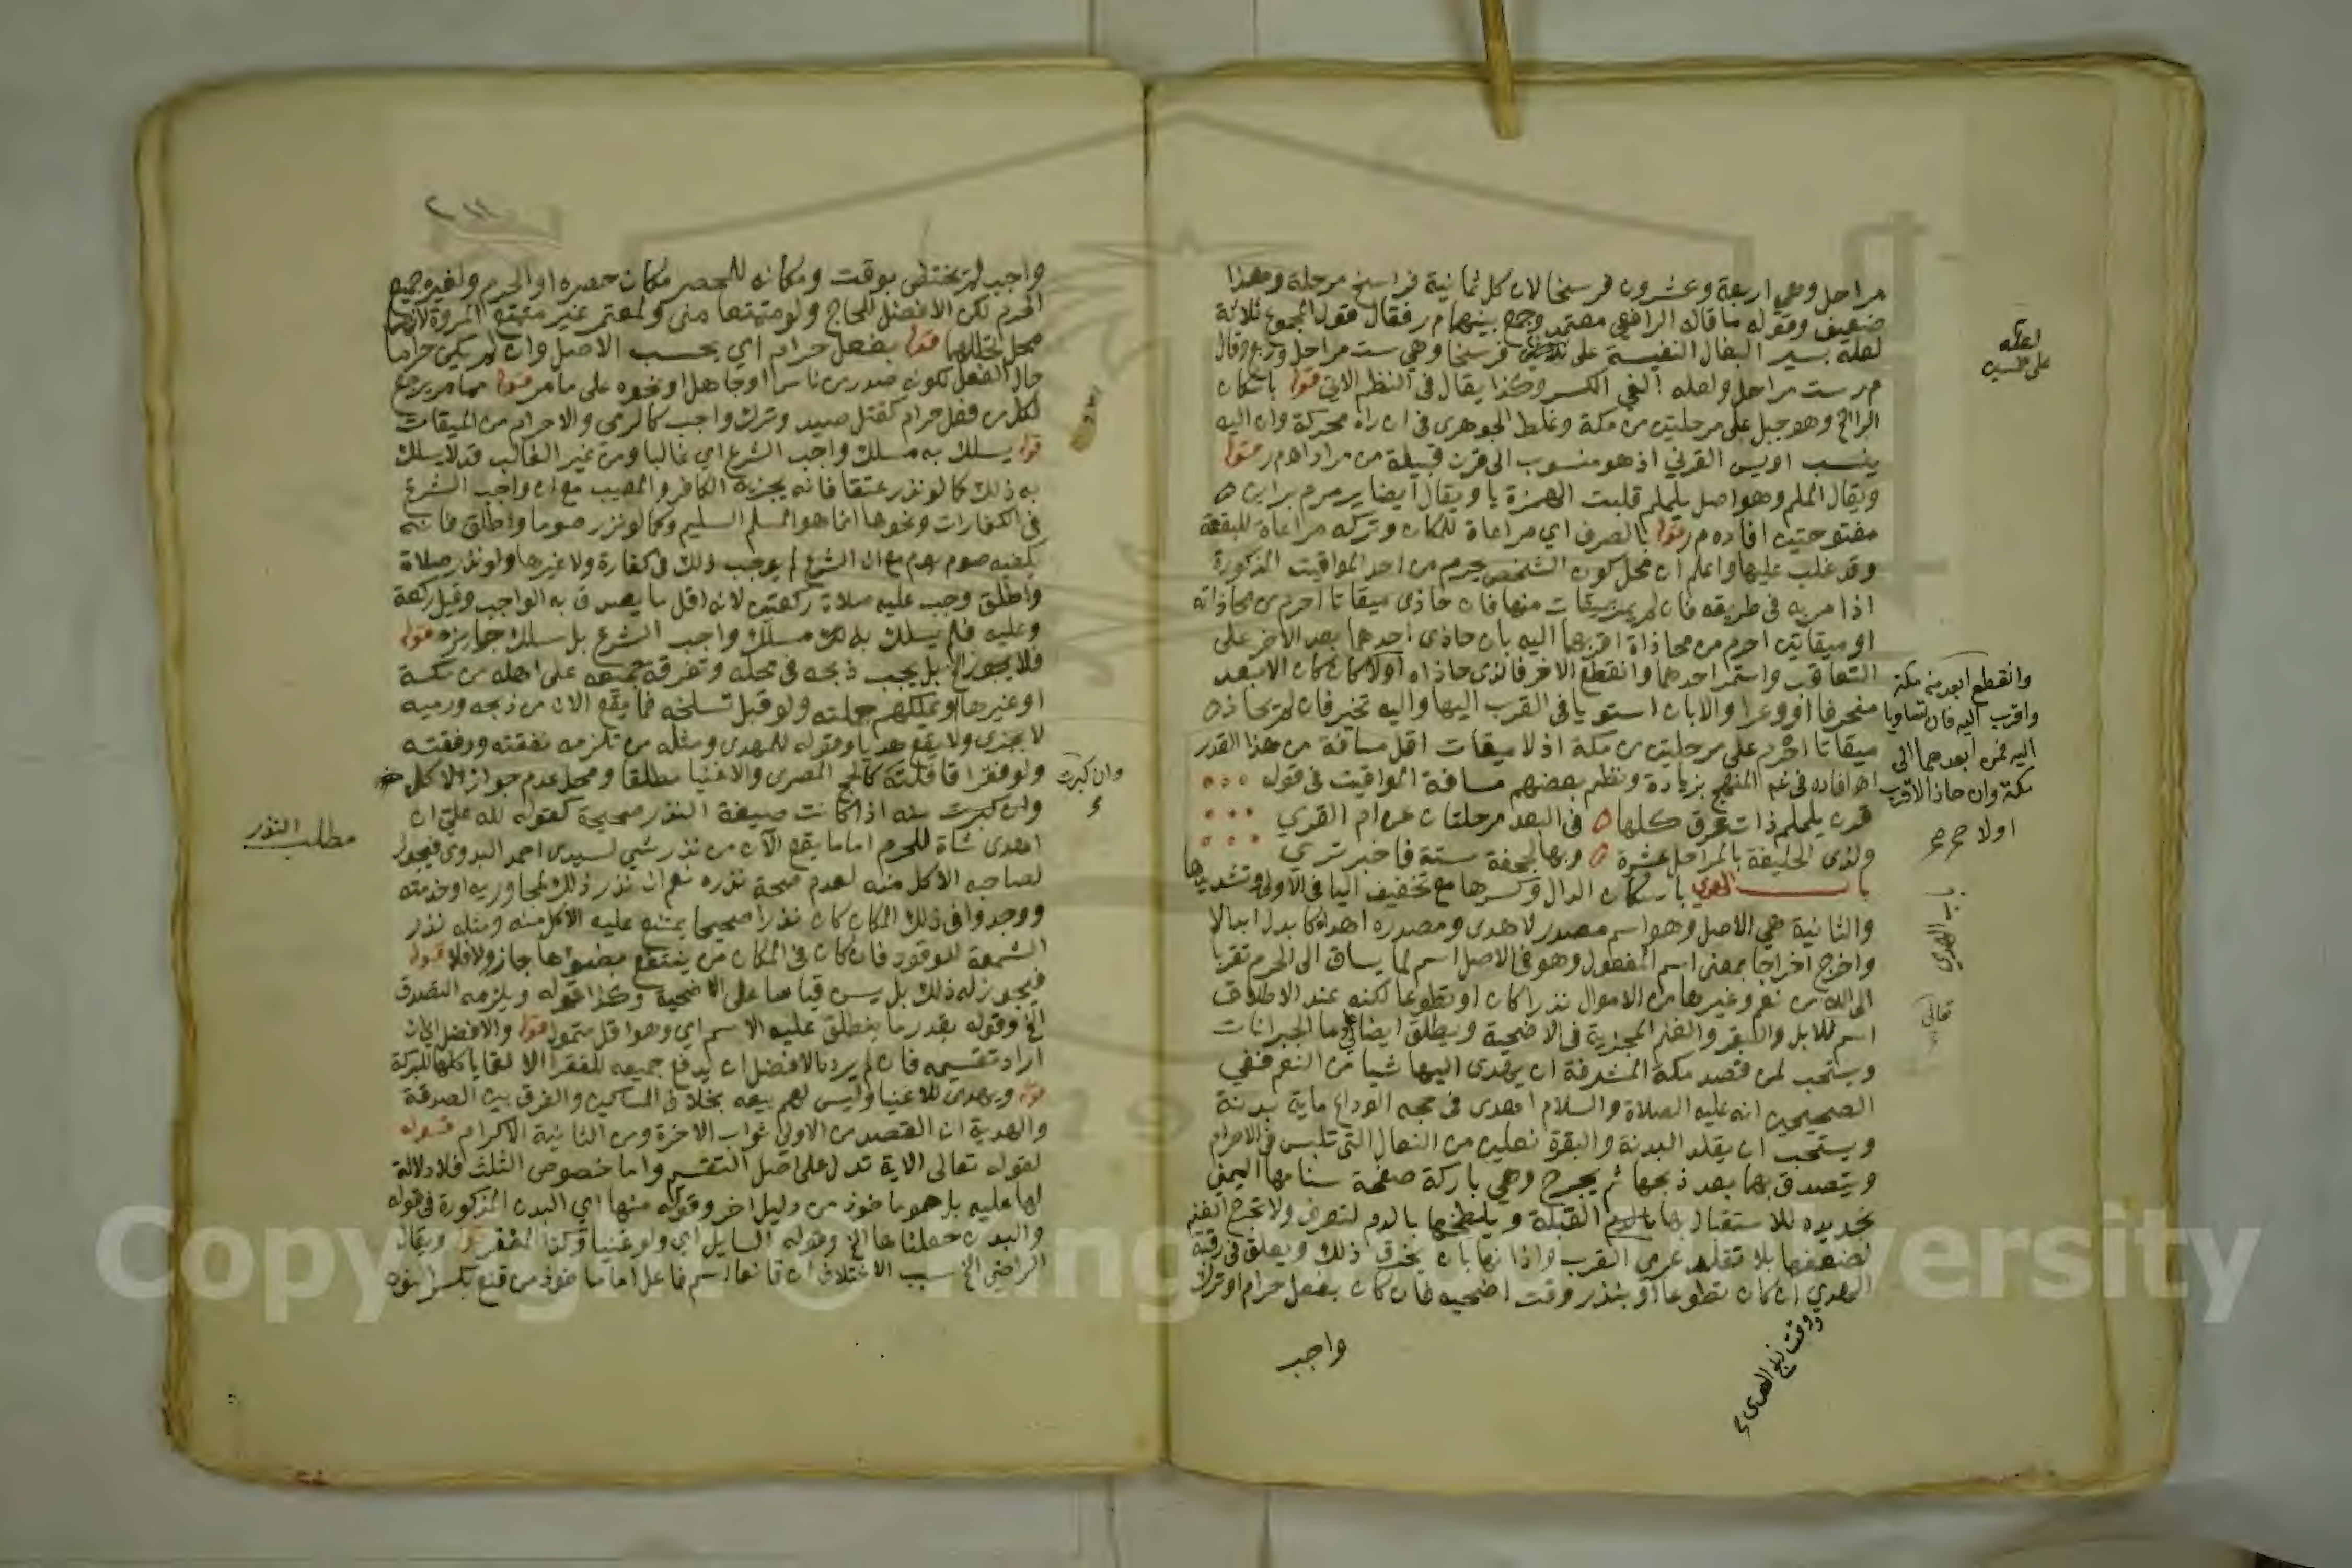 مراحل وهي اربعة وعشرون فرسخا لان كل ثمانية فراسخ مرحلة وهذا
ضعيف وقوله ما قاله الرافعي معتمد وجمع بينهما م ر فقال قول المجموع ثلاثة
لعله بسير البغال النفيسة على فرسخا وهي ست مراحل وربع وقال
م ر ست مراحل ولعله الغي الكسر وكذا يقال في النظم الاتي قوله باسكان
الراء الخ وهو جبل على مرحلتين من مكة وغلط الجوهري في ان راه محركة وان اليه
ينسب اويس القرني اذ هو منسوب الى قرن قبيلة من مراد اهم ر قوله
ويقال الملم وهو اصل يلملم قلبت الهمزة يا ويقال ايضا يرمرم براين
مفتوحتين افاده م ر قوله بالصرف اي مراعاة للمكان وتركه مراعاة للبقعة
وقد غلب عليها واعلم ان محل كون الشخص يحرم من احد المواقيت المذكورة
اذا مر به في طريقه فان لم يمر بميقات منها فان حاذى ميقاتا احرم من محاذاته
او ميقاتين احرم من محاذاة اقربهما اليه بان حاذى احدهما بعد الاخر على
التعاقب واستمر احدهما وانقطع الاخر فالذي حاذاه اولا كان الابعد
منحرفا او وعرا والا بان استويا في القرب اليها واليه تخير فان لم يحاذ
ميقاتا احرم على مرحلتين من مكة اذ لا ميقات اقل مسافة من هذا القدر
اهـ افاده في المنهج بزيادة ونظم بعضهم مسافة المواقيت في قوله
قرن يلملم ذات عرق كلها في البعد مرحلتان عن ام القري
ولذي الحليفة بالمراحل عشرة وبها لجحفة ستة فاخبر تري
باب الهدي باسكان الدال وكسرها مع تخفيف اليا في الاولى وتشديدها
والثانية هي الاصل وهو اسم مصدر لاهدى ومصدره اهدا كابدل ابدالا
واخرج اخراجا بمعنى اسم المفعول وهو في الاصل اسم لما يساق الى الحرم تقربا
الى الله من نعم وغيرها من الاموال نذرا كان او تطوعا لكنه عند الاطلاق
اسم للابل والبقر والغنم المجزية في الاضحية ويطلق ايضا على ما الجبرانات
ويستحب لمن قصد مكة المشرفة ان يهدى اليها شيا من النعم ففي
الصحيحين انه عليه الصلاة والسلام اهدى في حجه الوداع ماية بدنة
ويستحب ان يقلد البدنة والبقرة نعلين من النعال التي تلبس في الاحرام
ويتصدق بهما بعد ذبحها ثم يجرح وهي باركة صفحة سنامها اليمنى
بحديدة للاستقبال بها القبلة ويلطخها بالدم لتعرف ولا تجرح الغنم
لضعفها بلا تقلد عرى القرب واذانها بان يخرق ذلك ويعلق في رقبة
الهدي ان كان تطوعا او بنذر وقت اضحية فان كان بفعل حرام او ترك
واجب
لعله
وانقطع ابعد من مكة
واقرب اليه فان تساويا
اليه فمن ابعدهما الى
مكة وان حاذ الاقرب
اولا
باب الهدي
وقت ذبح الهدي
واجب لم يختص بوقت ومكانه للمحصر مكان حصره او الحرم ولغيره جميع
الحرم لكن الافضل للحاج ولو متمتعا منى ولمعتمر غير متمتع المروة لانهما
محل تحللهما قوله بفعل حرام اي بحسب الاصل وان لم يكن حراما
حال الفعل لكونه صدر من ناس او جاهل او نحوه على ما مر قوله مما مر يرجع
لكل من فعل حرام كقتل صيد وترك واجب كالرمي والاحرام من الميقات
قوله يسلك به مسلك واجب الشرع اي غالبا ومن غير الغالب قد لا يسلك
به ذلك كما لو نذر عتقا فانه يجزيه الكافر والمعيب مع ان واجب الشرع
في الكفارات ونحوها انما هو المسلم السليم وكما لو نذر صوما واطلق فانه
يكفيه صوم يوم مع ان الشرع لم يوجب ذلك في كفارة ولا غيرها ولو نذر صلاة
واطلق وجب عليه صلاة ركعتين لانه اقل ما يصدق به الواجب وقيل ركعة
وعليه فلم يسلك به مسلك واجب الشرع بل سلك جايزه قوله
فلا يجوز الخ بل يجب ذبحه في محله وتفرقة جميعه على اهله من مكة
او غيرها وتملكهم جملته ولو قبل سلخه فما يقع الان من ذبحه ورميه
لا يجزى ولا يقع هديا وقوله للمهدى ومثله من تلزمه نفقته ورفقته
ولو فقرا قافلته كالحج المصرى والاغنيا مطلقا ومحل عدم جواز الاكل
وان كبرت منه اذا كانت صيغة النذر صحيحة كقوله لله علي ان
اهدى شاة للحرم اما ما يقع الآن من نذر شي لسيدى احمد البدوى فيجوز
لصاحبه الاكل منه لعدم صحة نذره نعم ان نذر ذلك لمجاوريه او خدمته
ووجدوا في ذلك المكان كان نذرا صحيحا يمتنع عليه الاكل منه ومثله نذر
الشمعة للوقود فان كان في المكان من ينتفع بضوئها جاز والا فلا قوله
فيجوز له ذلك بل يسن قياسا على الاضحية وكذا قوله ويلزمه التصدق
الخ وقوله بقدر ما ينطلق عليه الاسم اي وهو اقل متمول قوله والافضل اي ان
اراد تقسيمه فان لم يرد فالافضل ان يدفع جميعه للفقرا الا لقما ياكلها للبركة
قوله ويهدى للاغنيا وليس لهم بيعه بخلاف المساكين والفرق بين الصدقة
والهدية ان القصد من الاولى ثواب الاخرة ومن الثانية الاكرام قوله
لقوله تعالى الاية تدل على اصل التقسيم واما خصوص الثلث فلا دلالة
لها عليه بل هو ماخوذ من دليل اخر وقوله منها اي البدن المذكورة في قوله
والبدن جعلناها الخ وقوله السايل اي ولو غنيا وكذا المعتر ويقال
الراضي الخ سبب الاختلاف ان قانعا اسم فاعل اما ماخوذ من قنع بكسر النون
وان كبرت
مطلب النذر